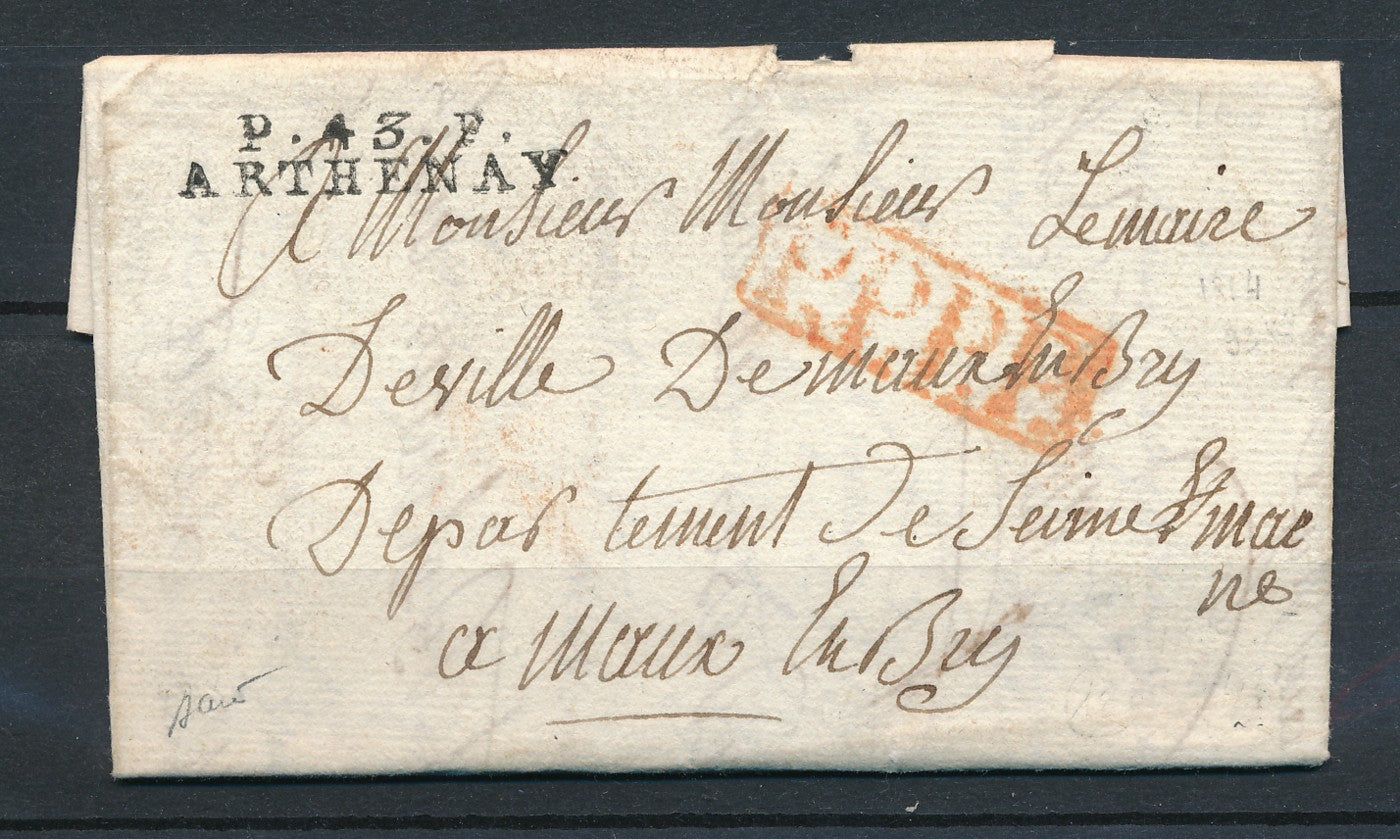 P. 43. P.
ARTHENAY.
A Monsieur Monsieur Lemaire
P.P.P.P.
Deville De maux En Bry
Depar tement De Seine & mar
ne
a Maux En Bry